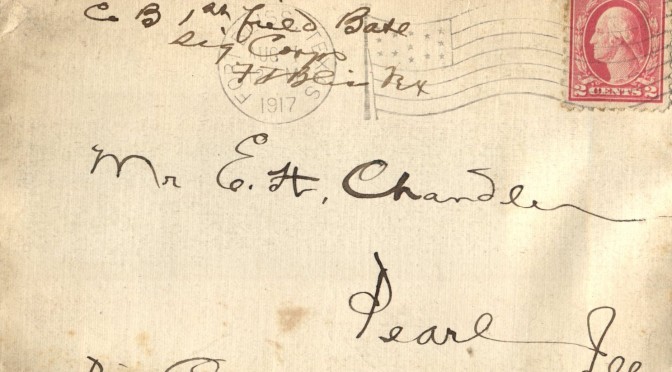 C B 1st field Bat
Sig Corps
Ft Bliss Tex
1917
2 CENTS 2
Mr E. H. Chandler
Pearl Ill